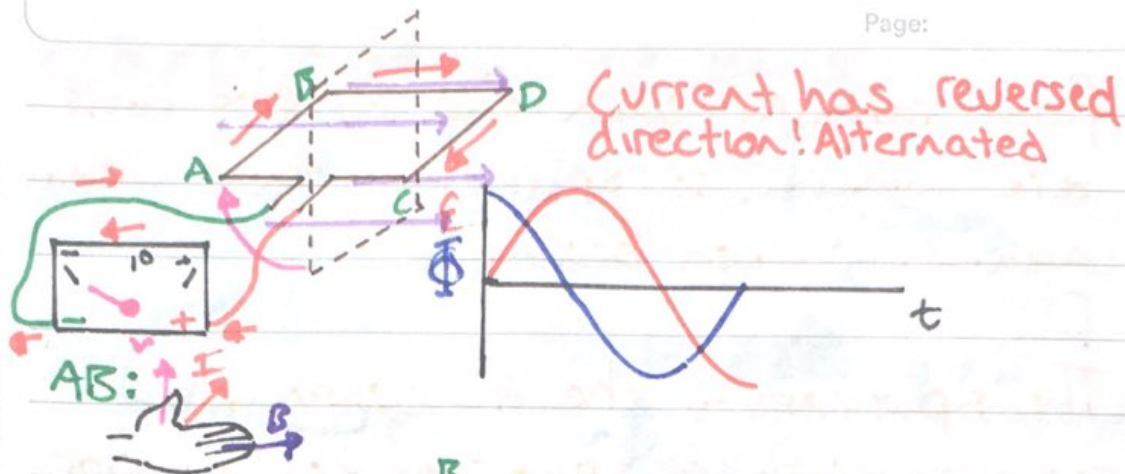 Page:
B
D
Current has reversed
direction! Alternated
A
C
ε
Φ
t
- 0 +
- +
V
I
AB:
B
B